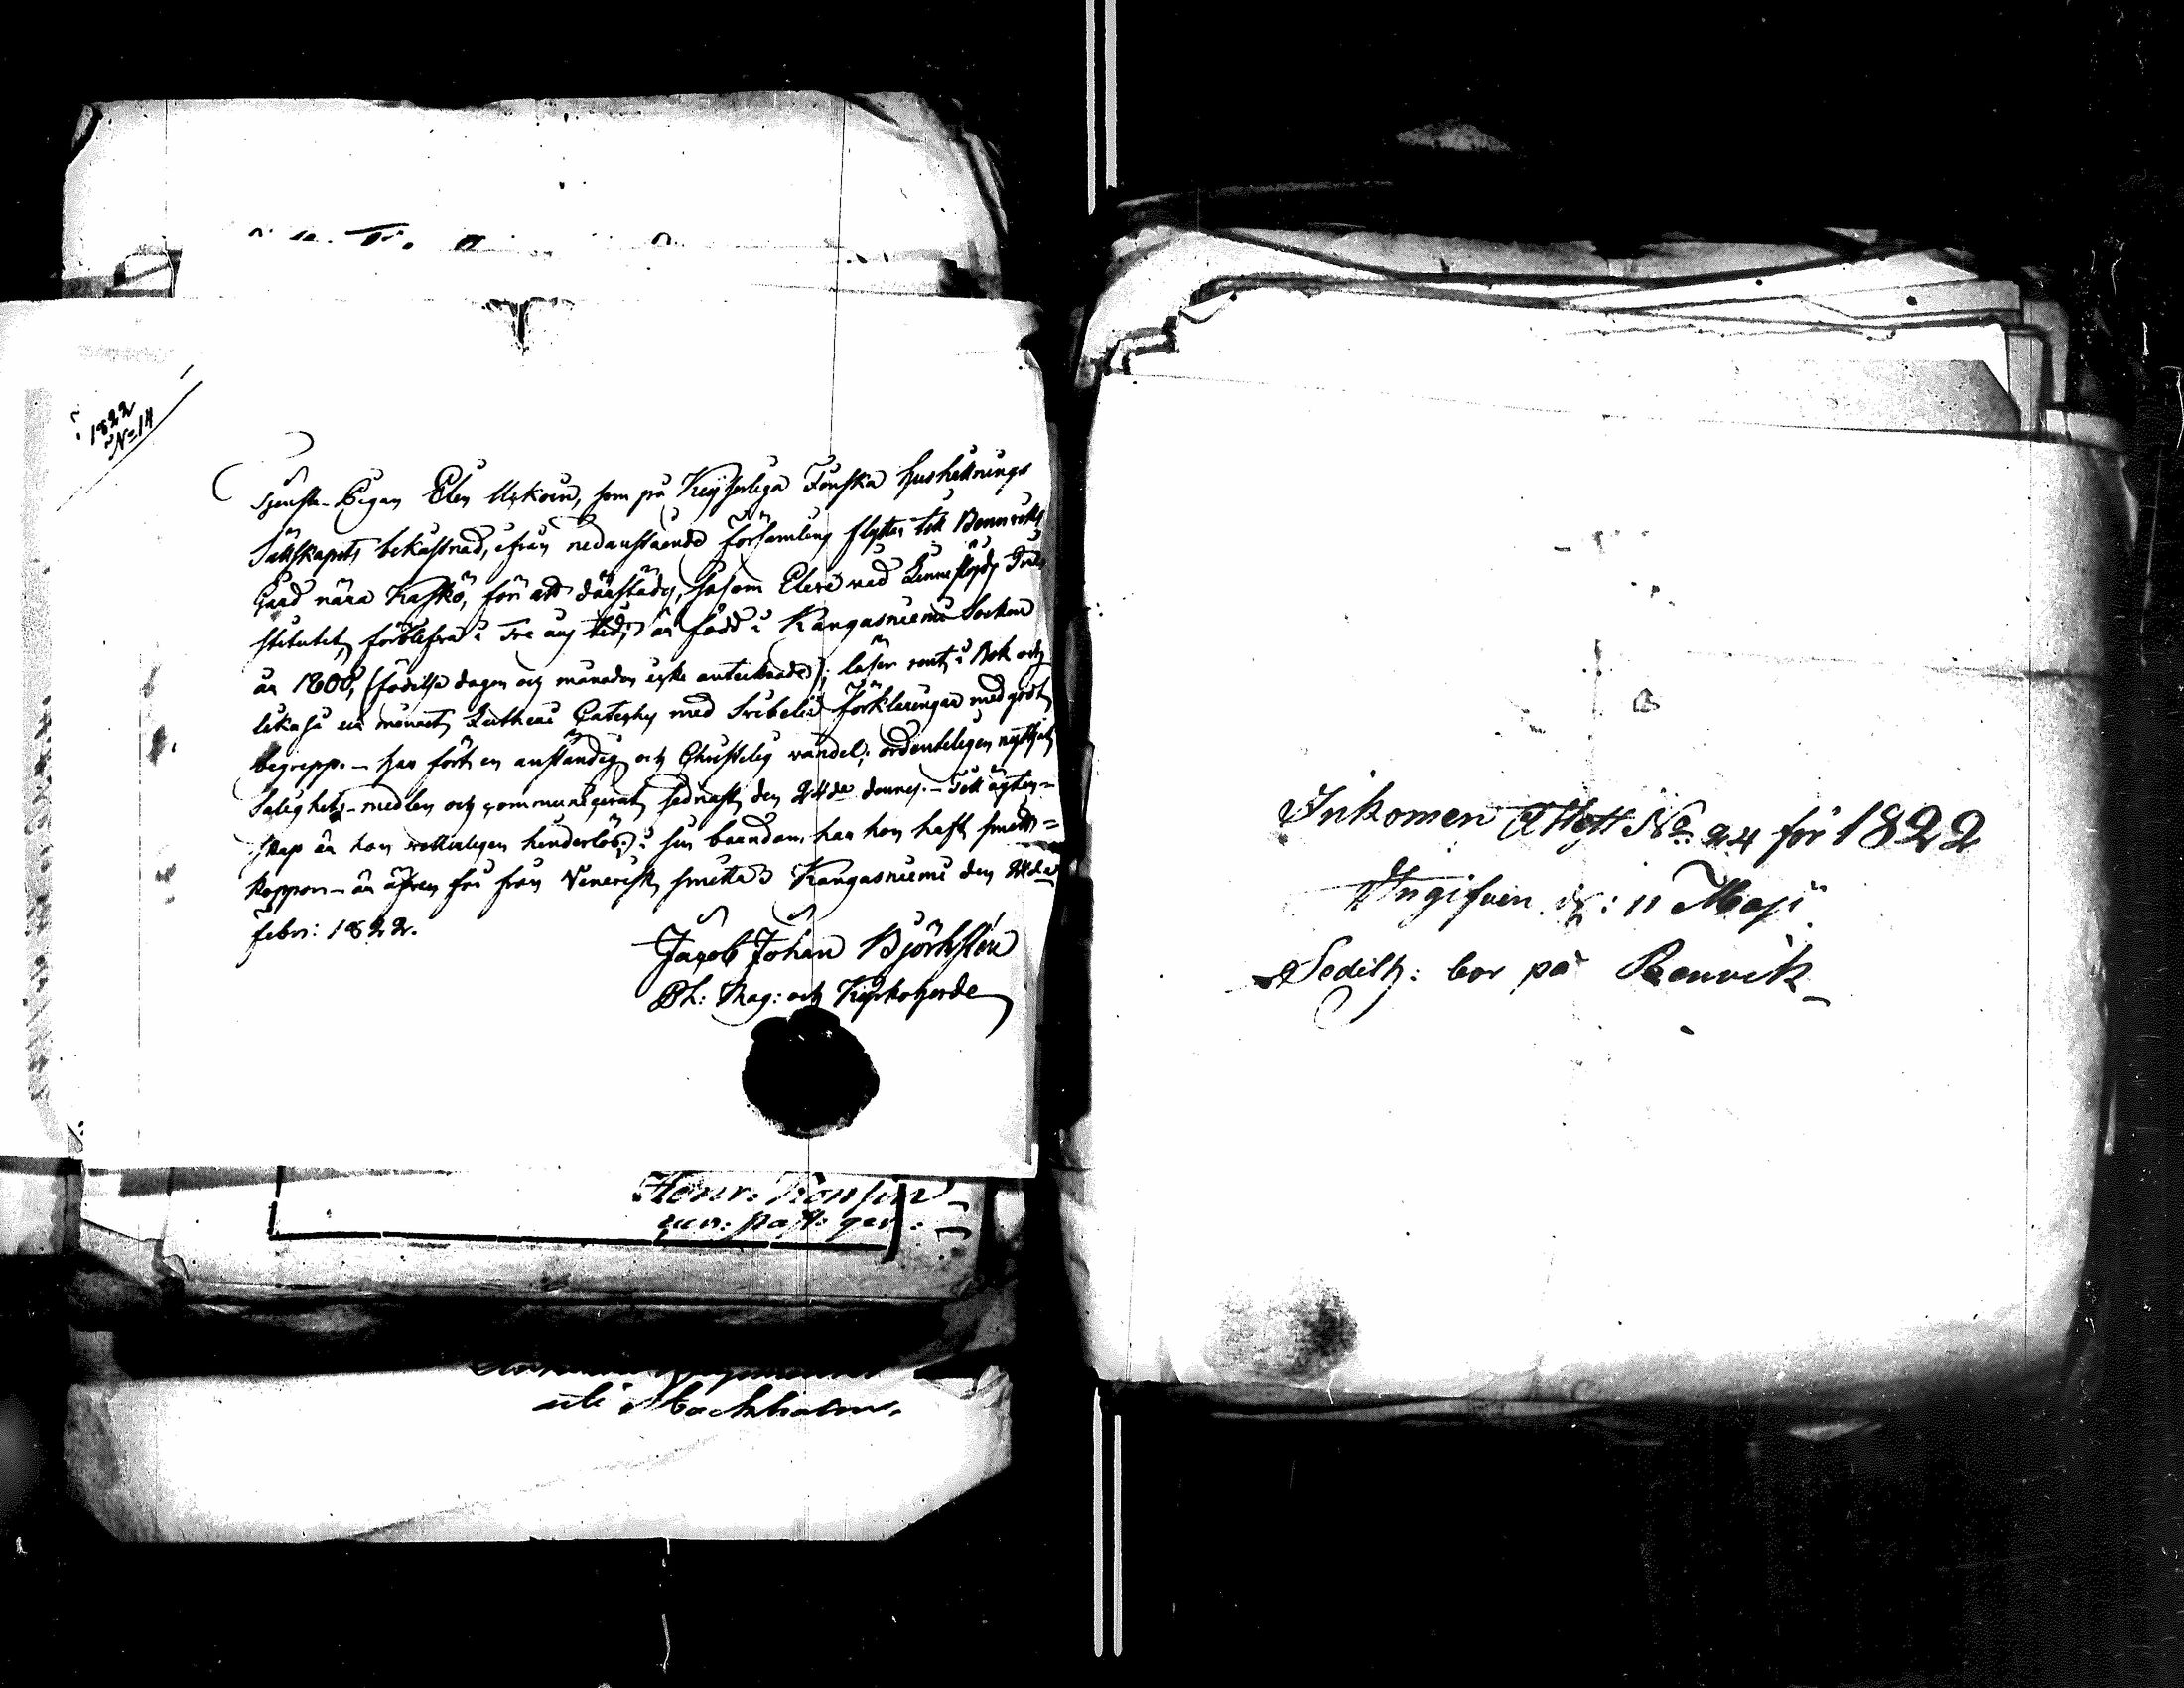 1822
No 14
Tjenste-Pigan Elen Uckoin, som på Keijserliga Finska Hushållnings
Sällskapets bekåstnad, ifrån nedanstående Församling flyttar till Bennviks
Gård nära Kaskö, för att därstädes, såsom Eleve wid Linneslöjds In-
stitutet, förblifva i Tre års tid; är född i Kangasniemi Sockn
år 1800, (födelse dagen och månaden icke antecknade); läser rent i Bok och
lika så ur minnet Lutheri Cateches med Svebelii Förklaringar med godt
begrepp. - har fört en anständig och Christelig vandel; ordenteligen nyttjat
Salighets-medlen och communicerat sednast den 24de dennes. - Till ägten-
skap är hon vetterligen hinderlös; i sin barndom har hon haft smitt-
koppor - är äfven fri från Venerisk smitta Kangasniemi den 24de
Febr: 1822.
Jacob Johan Björkstén
Ph: Mag: och Kyrkoherde
Henr. Konsin
uti Stockholm.
Inkomen Attest No 24 för 1822
Ingifven d: 11 Maji
Sedelh: bor på Benvik